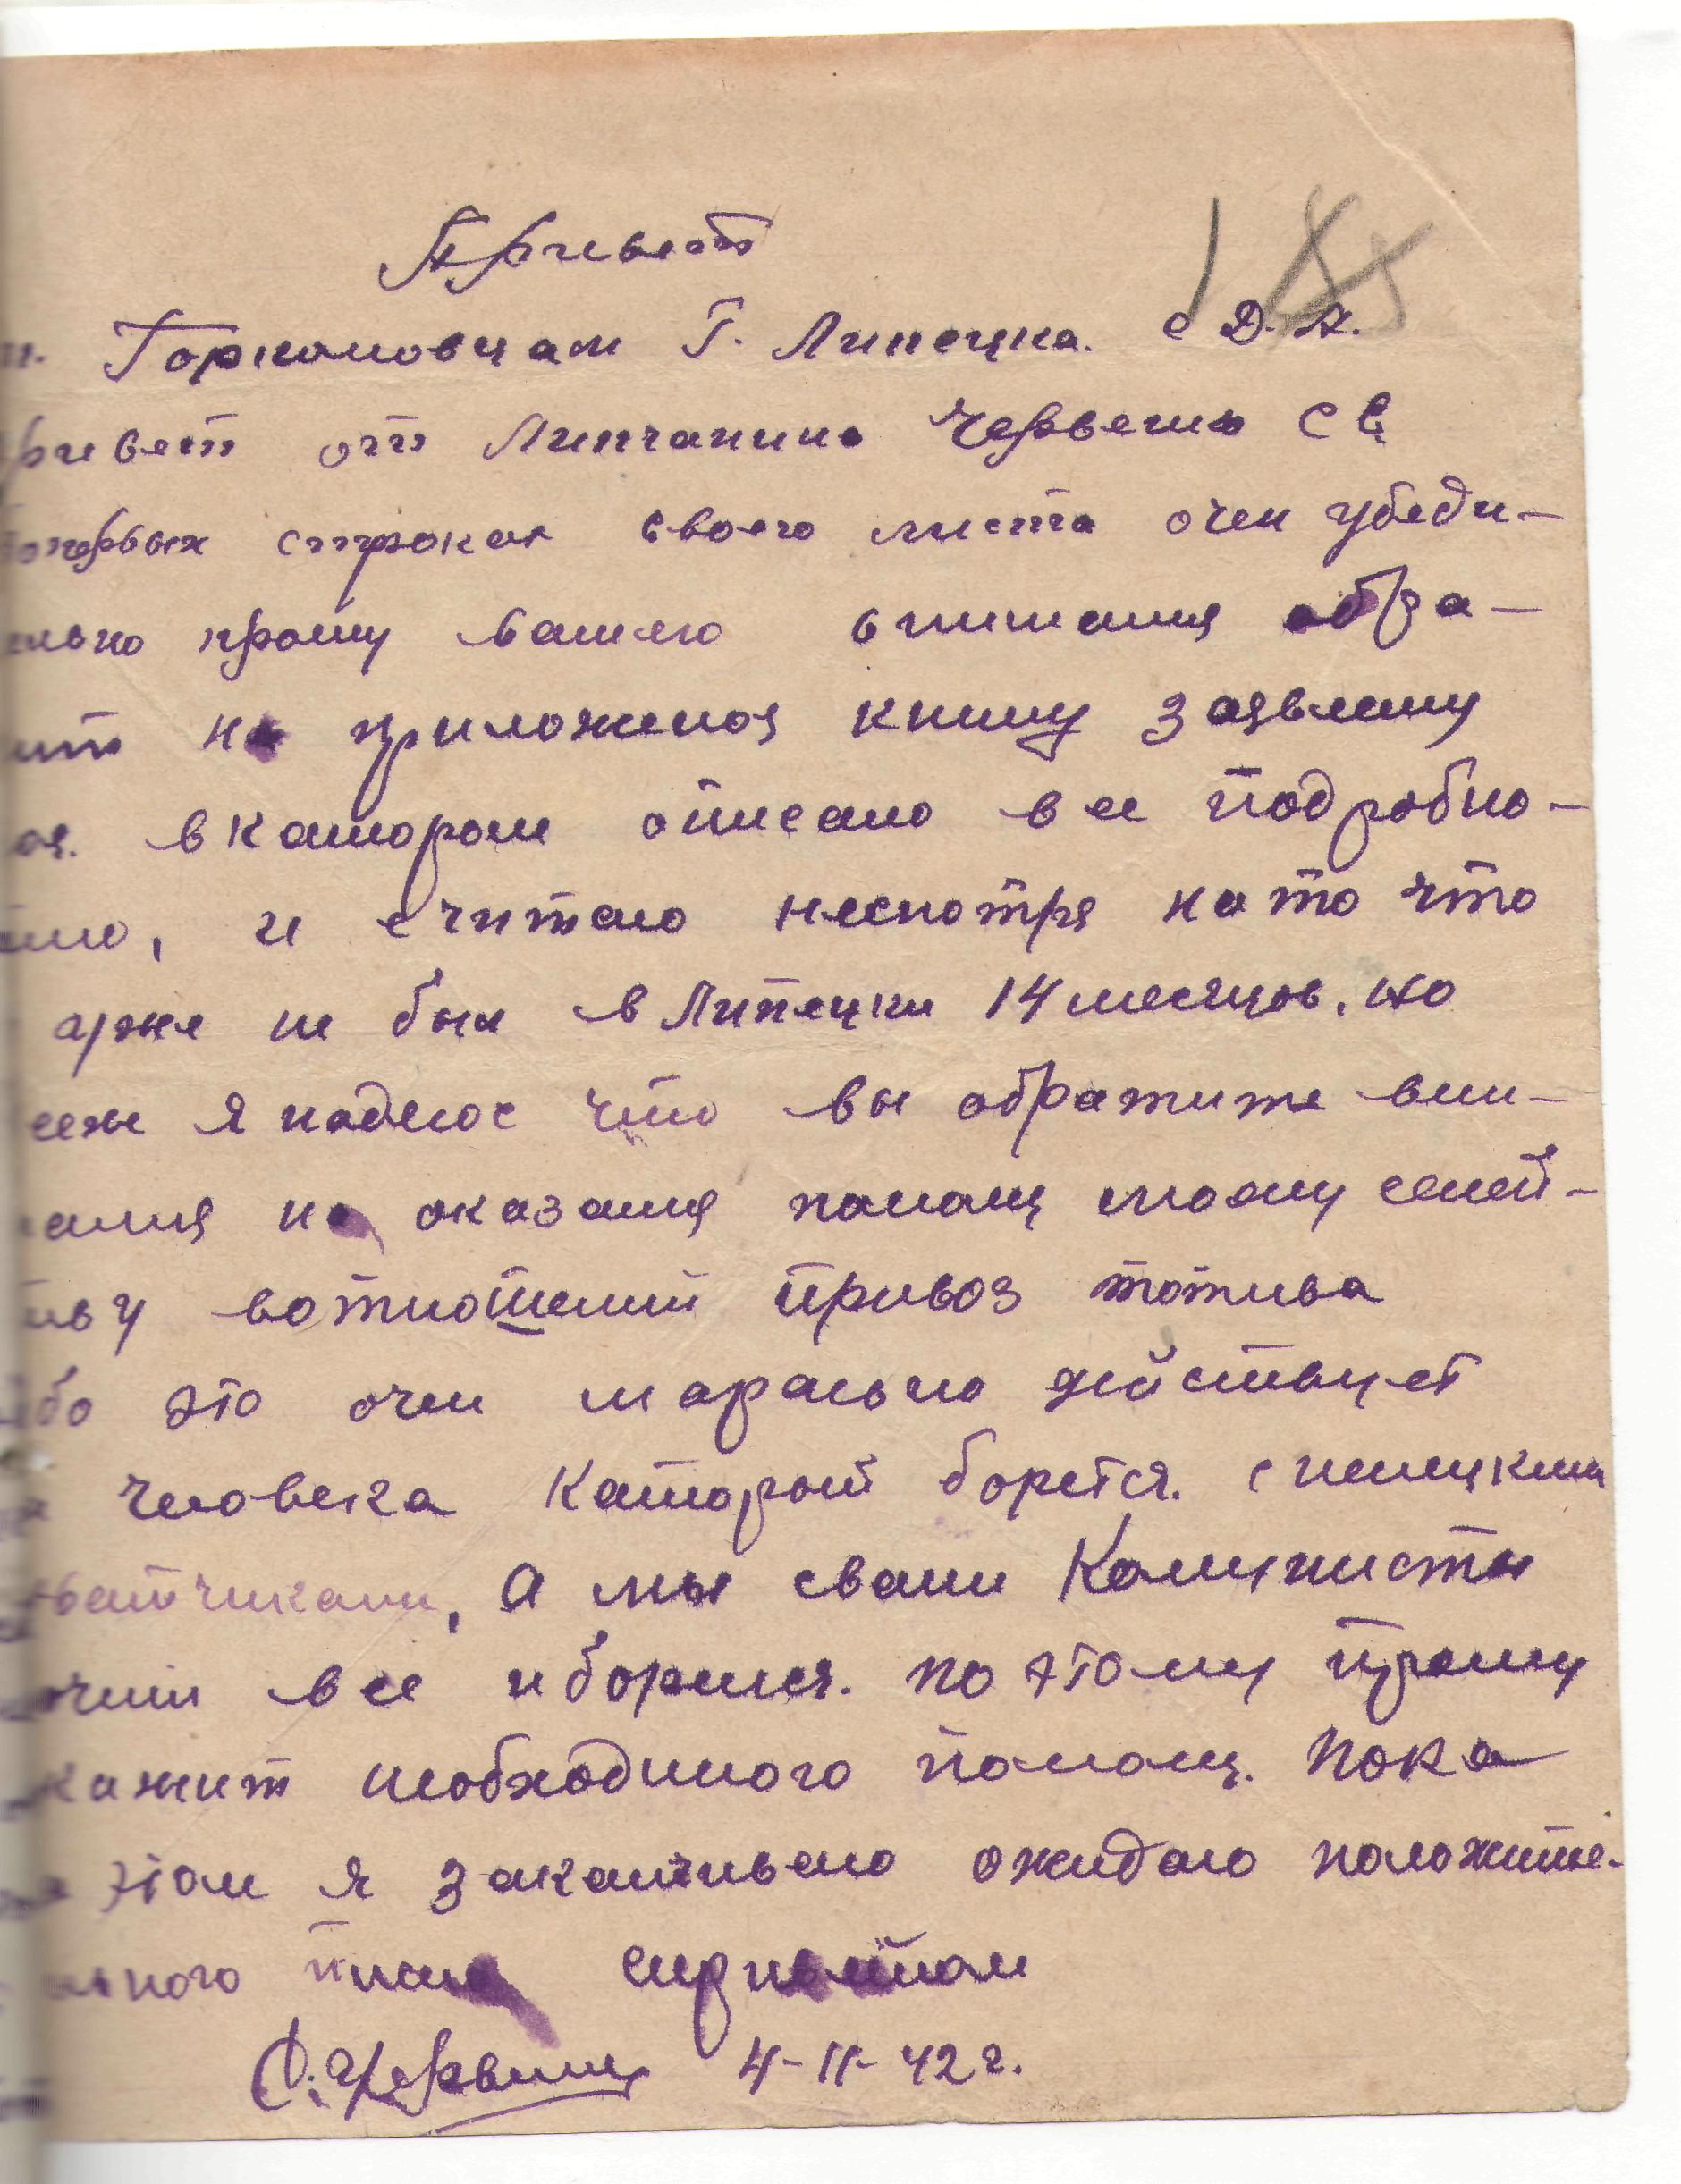 Привет
Горкомовцам Г. Липецка. с Д. А.
ривет от Липчанина Червень С Е
первых строках своего листа очен убеди-
ельно прошу вашего внимания обра-
ит на приложеноя книму заявлению
оя. вкатором описано все подробно-
и считаю несмотря на то что
ауже не был в Липецки 14 месяцов, но
я надеюс что вы обратите вни-
мания на оказания помощ моему семей-
тву вотношений привоз топлива
ибо это очен марально действует
человека каторый борется. с немецкими
ватчиками, а мы свами Комунисты
все и боремся. по этому прошу
кажит необходимого помощ. пока
этом я заканчиваю ожидаю положите-
льного писма сприветом
С. Червень 4-II-42 г.